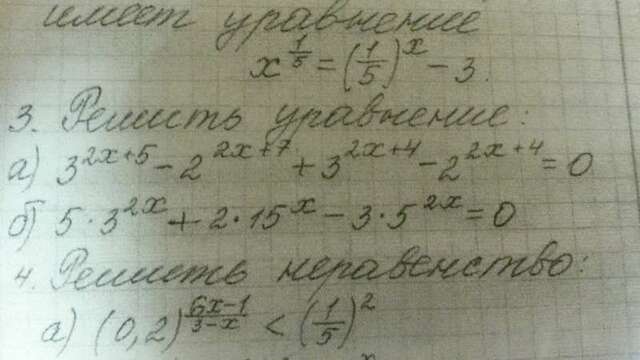 имеет уравнение
x^{1/5} = (1/5)^x - 3.
3. Решить уравнение:
а) 3^{2x+5} - 2^{2x+7} + 3^{2x+4} - 2^{2x+4} = 0
б) 5·3^{2x} + 2·15^x - 3·5^{2x} = 0
4. Решить неравенство:
а) (0,2)^{(6x-1)/(3-x)} < (1/5)^2